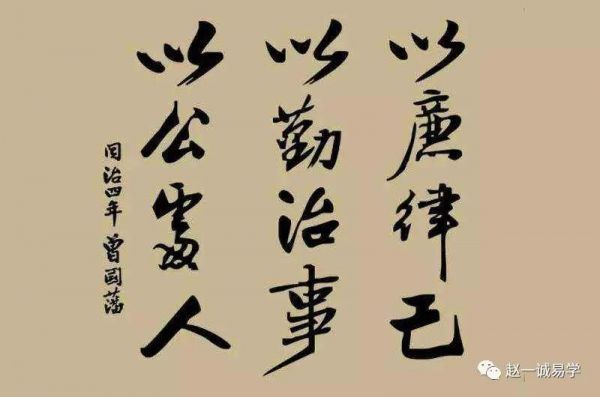 以廉律己
以勤治事
以公處人
同治四年 曾國藩
赵一诚易学